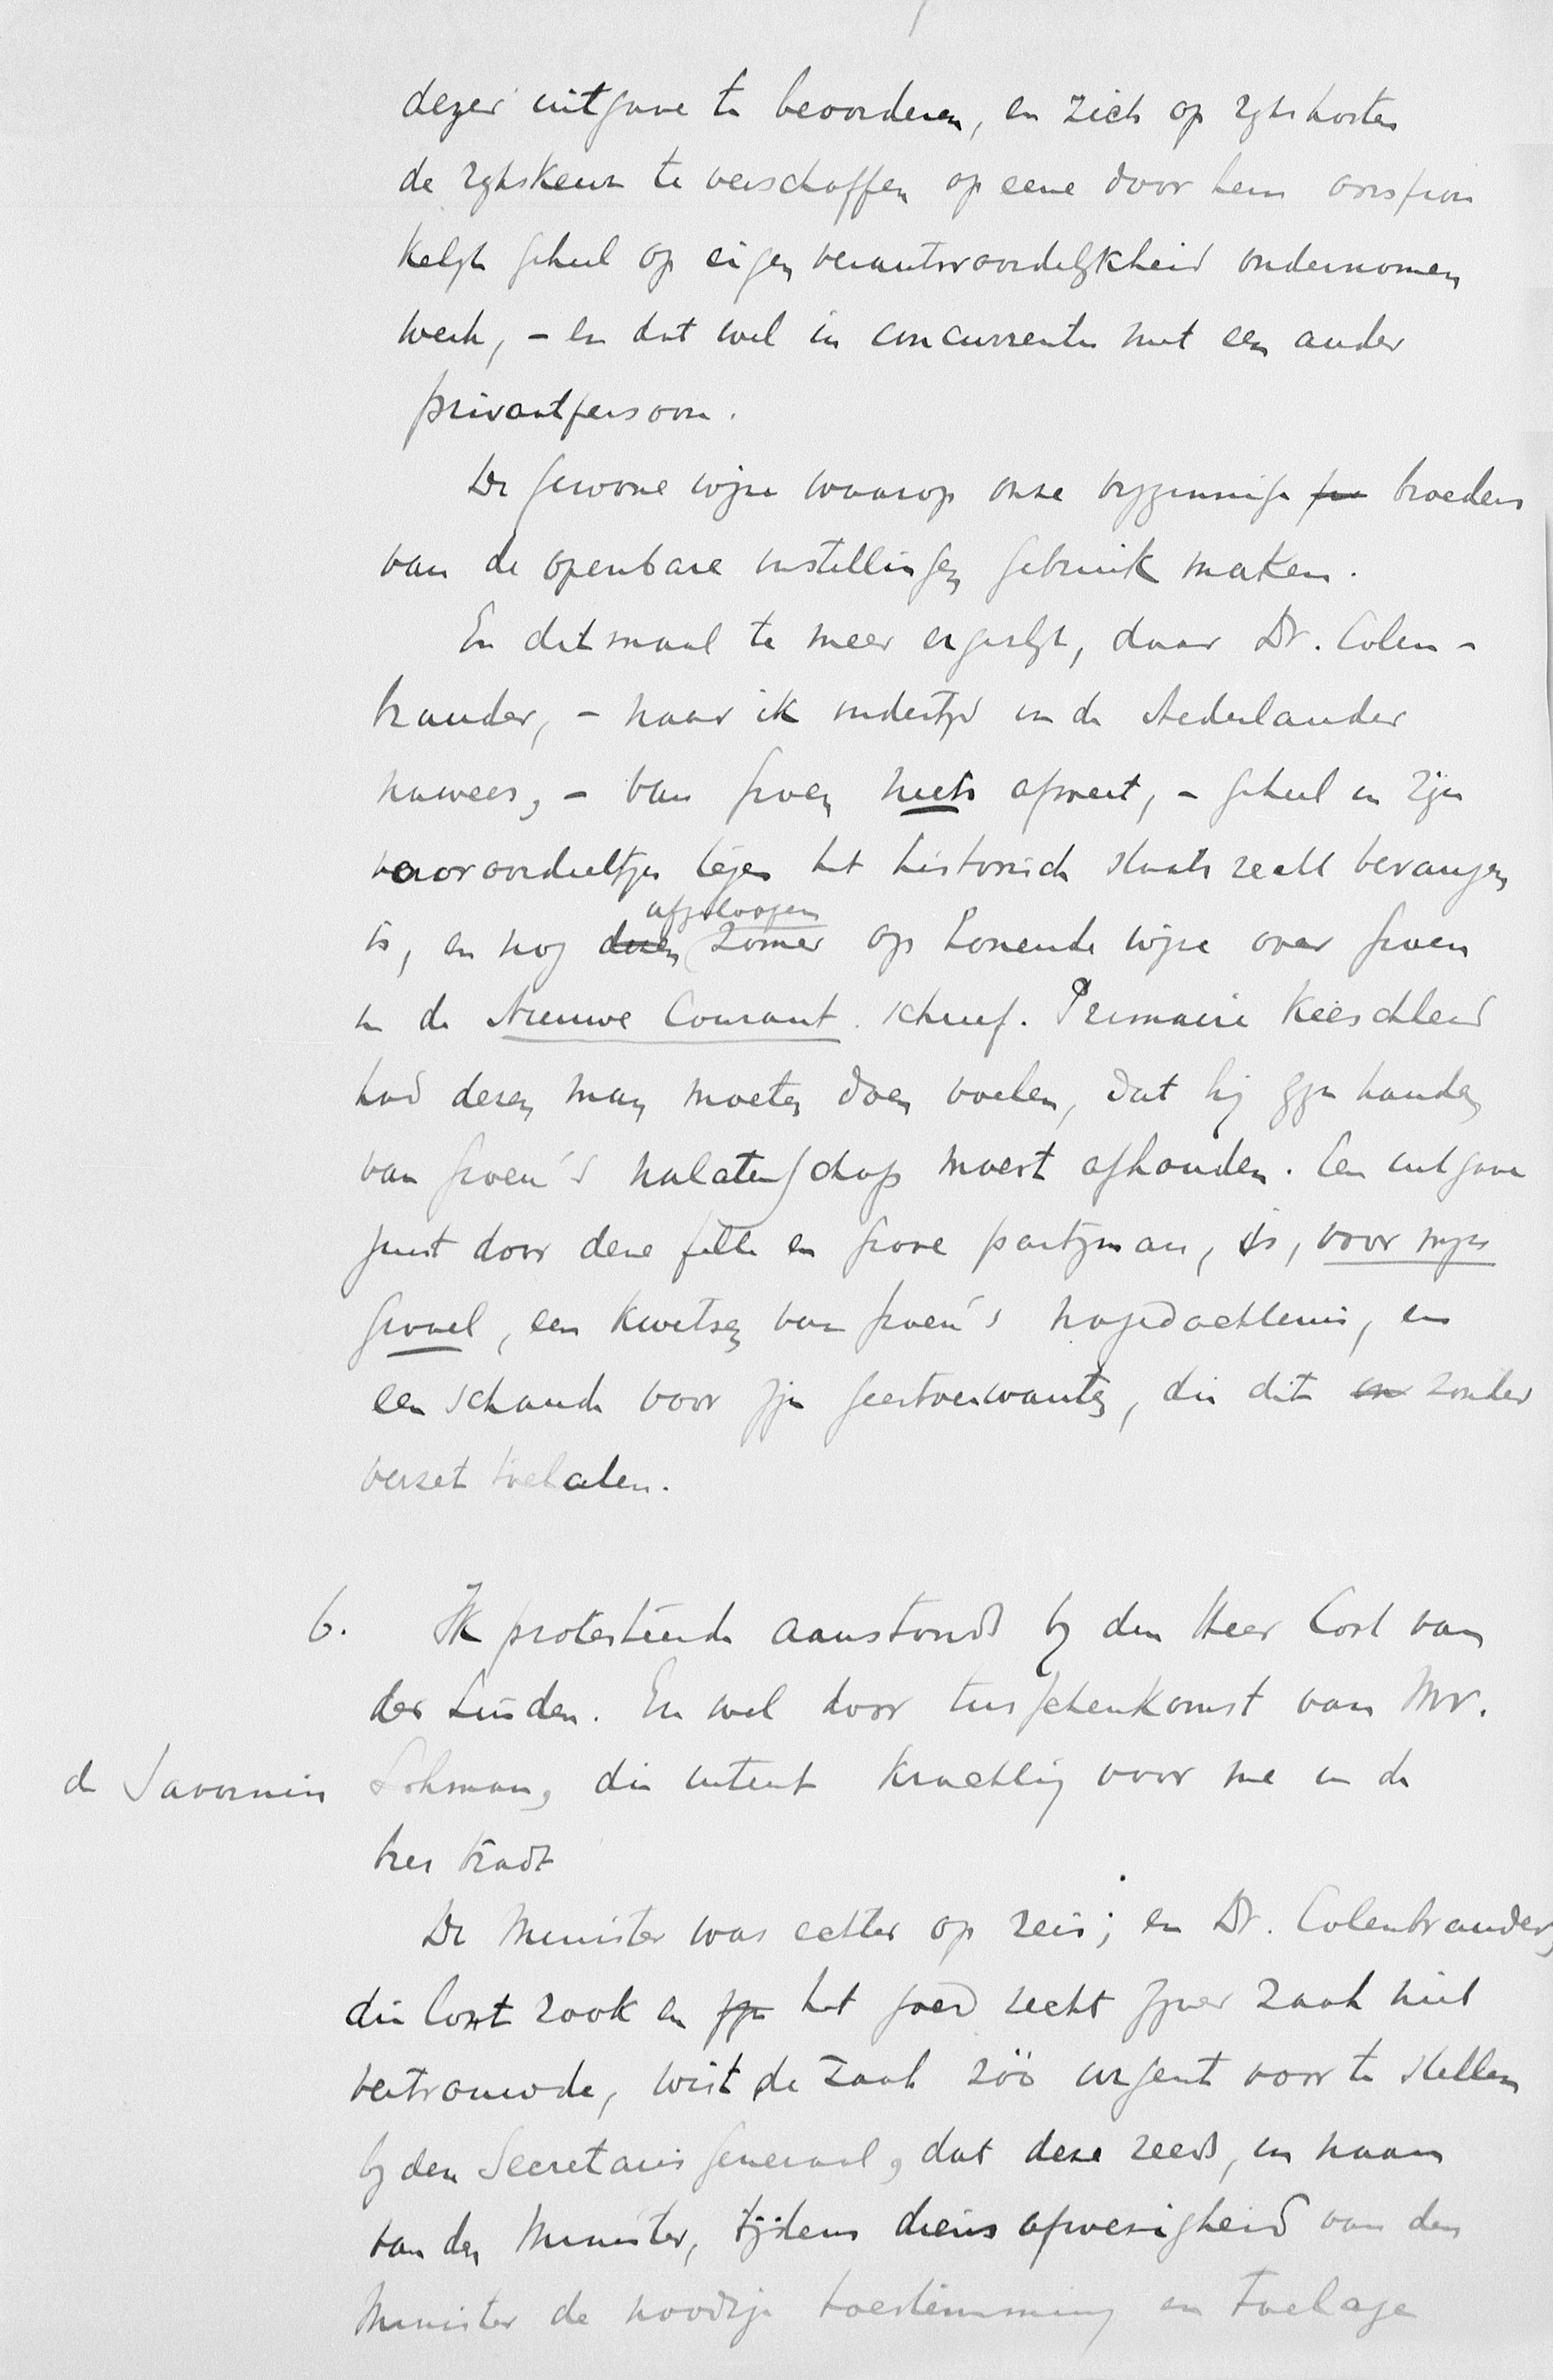 dezer uitgave te bevorderen, en zich op rijkskosten
de rijkskeur te verschaffen op eene door hem oorspron
kelijk geheel op eigen verantwoordelijkheid ondernomen
werk, – en dat wel in concurrentie met een ander
privaatpersoon.
De gewone wijze waarop onze vrijzinnige broeders
van de openbare instellingen gebruik maken.
En ditmaal te meer ergerlijk, daar Dr. Colen-
brander, – naar ik indertijd in de Nederlander
nawees, – van Groen niets afweet, – geheel in zijn
vooroordeeltjes tegen het historisch staatsrecht bevangen
is, en nog afgeloopen zomer op honende wijze over Groen
in de Nieuwe Courant schreef. Primaire kieschheid
had dezen man moeten doen voelen, dat hij zijn handen
van Groen's nalatenschap moest afhouden. Een uitgave
juist door deze felle en grove partijman, is, voor mijn
gevoel, een kwetsen van Groen's nagedachtenis, en
een schande voor zijn geestverwanten, die dit zonder
verzet toelaten.
6. Ik protesteerde aanstonds bij den Heer Cort van
der Linden. En wel door tusschenkomst van Mr.
de Savornin Lohman, die uiterst krachtig voor me in de
bres tradt
De Minister was echter op reis; en Dr. Colenbrander,
die lont rook en het goed recht zijner zaak niet
vertrouwde, wist de zaak zóó urgent voor te stellen
bij den Secretaris Generaal, dat deze reeds, in naam
van den Minister, tijdens diens afwezigheid van den
Minister de noodige toestemming en toelage